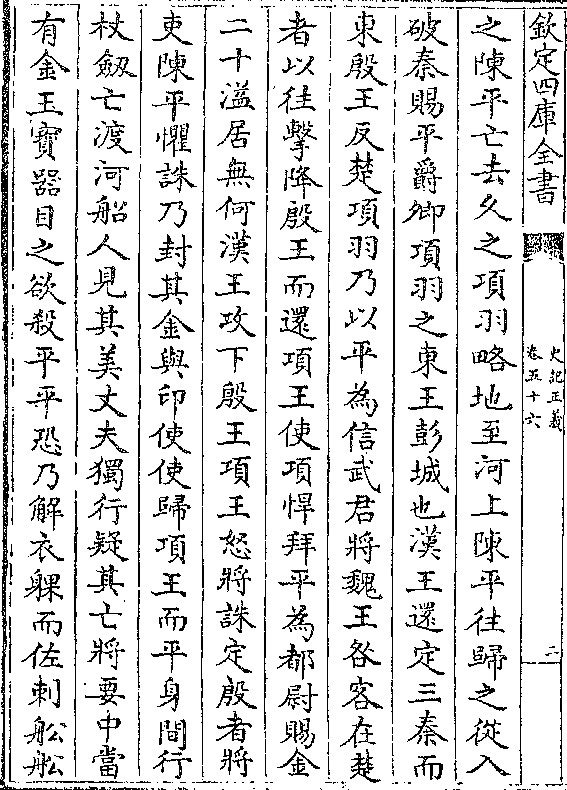 欽定四庫全書
史記正義
卷五十六
二
之陳平亡去久之項羽略地至河上陳平往歸之從入
破秦賜平爵卿項羽之東王彭城也漢王還定三秦而
東殷王反楚項羽乃以平為信武君將魏王咎客在楚
者以往擊降殷王而還項王使項悍拜平為都尉賜金
二十溢居無何漢王攻下殷王項王怒將誅定殷者將
吏陳平懼誅乃封其金與印使使歸項王而平身間行
杖劔亡渡河船人見其美丈夫獨行疑其亡將要中當
有金玉寶器目之欲殺平平恐乃解衣躶而佐刺舩舩